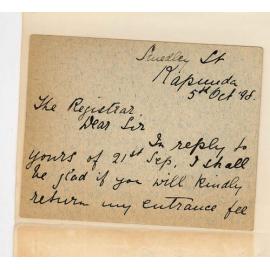 Smedley St
Kapunda
5th Oct 98.
The Registrar,
Dear Sir
In reply to
yours of 21st Sep. I shall
be glad if you will kindly
return my entrance fee